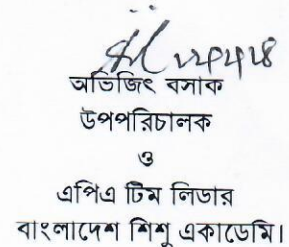 অভিজিৎ বসাক
উপপরিচালক
ও
এপিএ টিম লিডার
বাংলাদেশ শিশু একাডেমি।